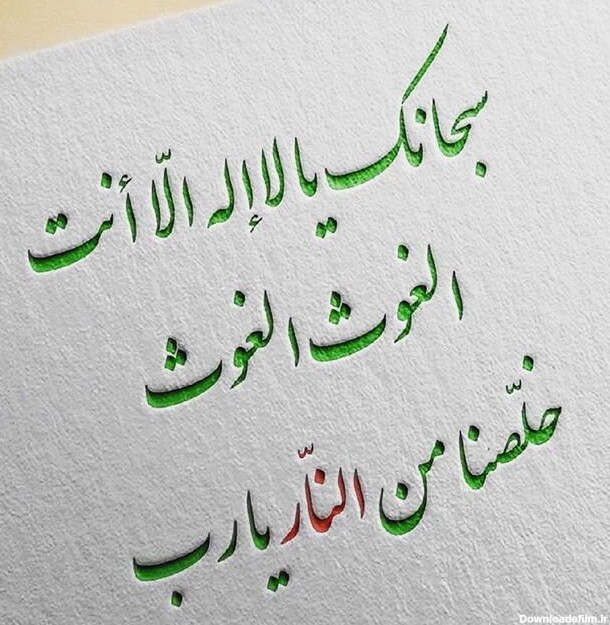 سبحانک یا لا إله الّا أنت
الغوث الغوث
خلّصنا من النّار یا رب
Downloadefilm.ir